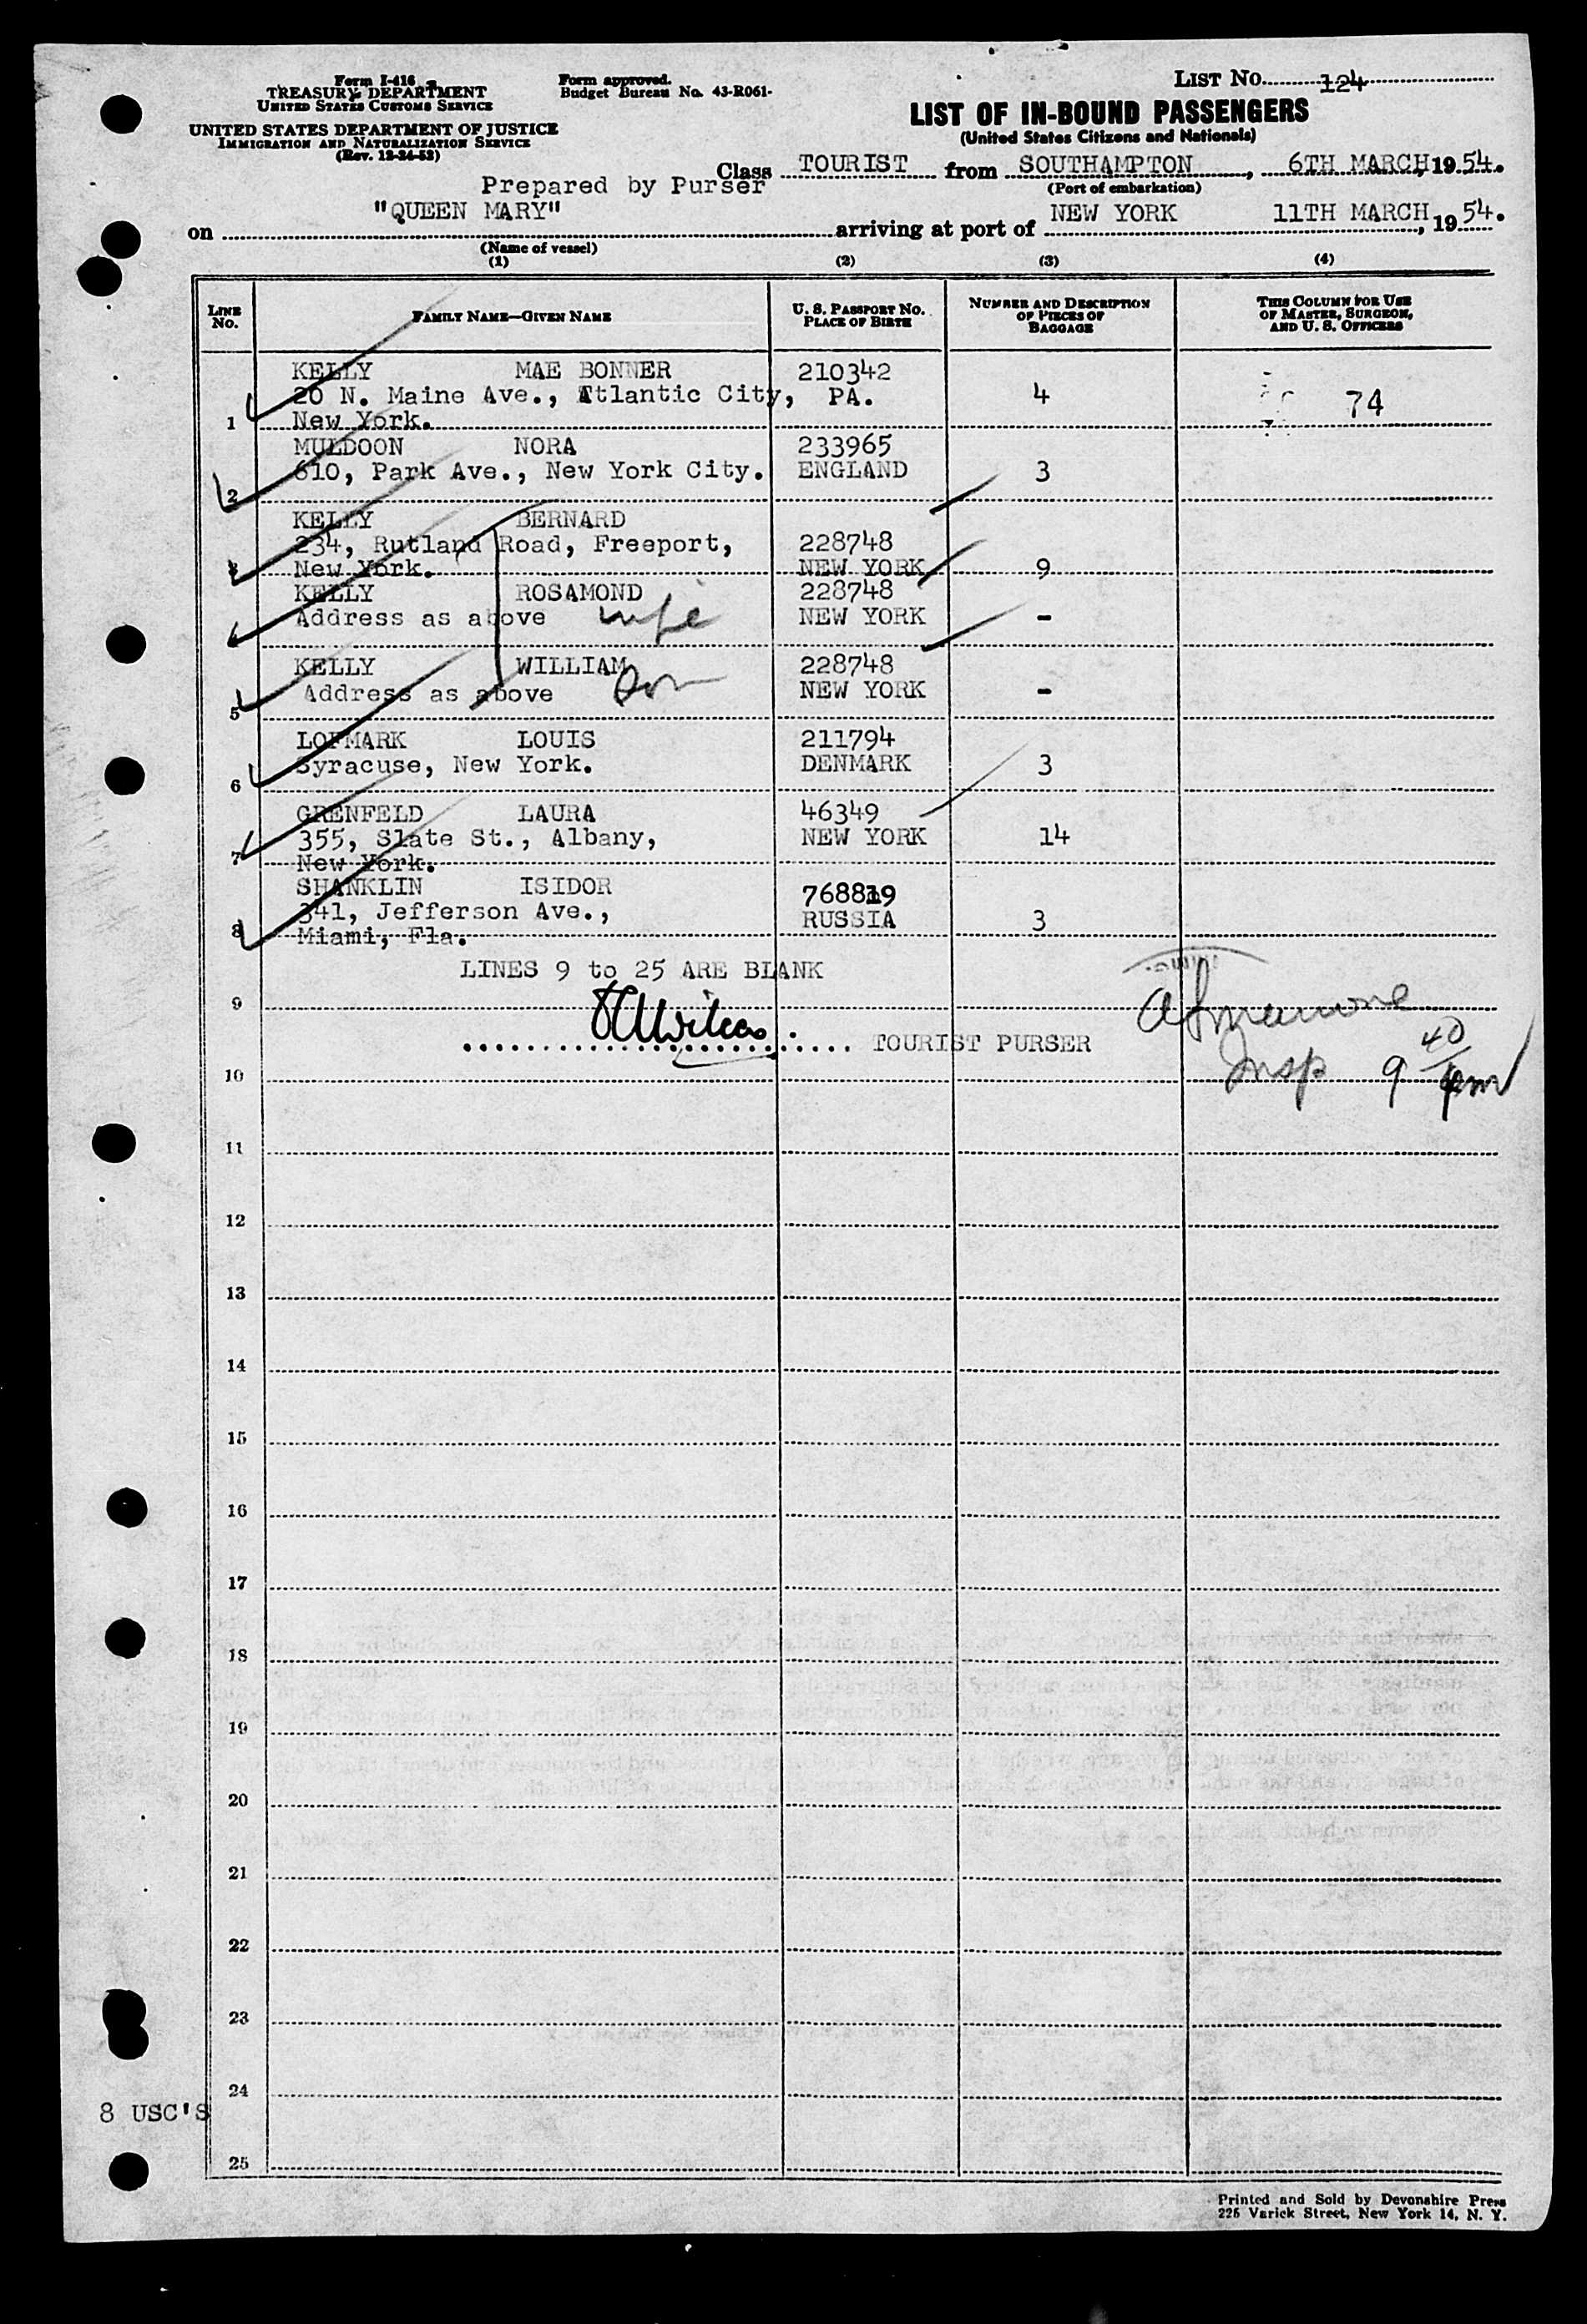 Form I-416
TREASURY DEPARTMENT
UNITED STATES CUSTOMS SERVICE
UNITED STATES DEPARTMENT OF JUSTICE
IMMIGRATION AND NATURALIZATION SERVICE
(Rev. 12-24-52)
Form approved.
Budget Bureau No. 43-R061-
LIST No. 124
LIST OF IN-BOUND PASSENGERS
(United States Citizens and Nationals)
Class TOURIST from SOUTHAMPTON, 6TH MARCH, 1954.
Prepared by Purser
(Port of embarkation)
on "QUEEN MARY" arriving at port of NEW YORK 11TH MARCH, 1954.
(Name of vessel)
(1) (2) (3) (4)
LINE No.
FAMILY NAME—GIVEN NAME
U. S. PASSPORT NO.
PLACE OF BIRTH
NUMBER AND DESCRIPTION
OF PIECES OF
BAGGAGE
THIS COLUMN FOR USE
OF MASTER, SURGEON,
AND U. S. OFFICERS
KELLY MAE BONNER 210342
20 N. Maine Ave., Atlantic City, PA. 4 74
1 New York.
MULDOON NORA 233965
610, Park Ave., New York City. ENGLAND 3
2
KELLY BERNARD
234, Rutland Road, Freeport, 228748
3 New York. NEW YORK 9
KELLY ROSAMOND 228748
Address as above wife NEW YORK -
4
KELLY WILLIAM 228748
Address as above Son NEW YORK -
5
LOFMARK LOUIS 211794
Syracuse, New York. DENMARK 3
6
GRENFELD LAURA 46349
355, Slate St., Albany, NEW YORK 14
7 New York.
SHANKLIN ISIDOR 768819
341, Jefferson Ave., RUSSIA 3
8 Miami, Fla.
LINES 9 to 25 ARE BLANK
9
TOURIST PURSER
Insp 9 40 pm
10
11
12
13
14
15
16
17
18
19
20
21
22
23
24
8 USC'S
25
Printed and Sold by Devonshire Press
225 Varick Street, New York 14, N. Y.